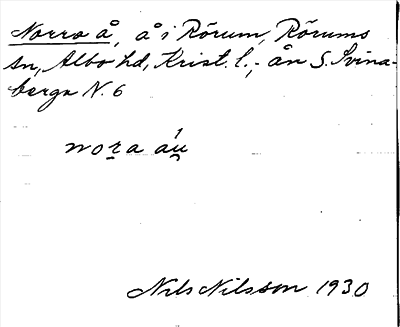 Norra å, å i Rörum, Rörums
sn, Albo hd, Krist. l.; ån S. Svina-
berga N. 6
nora áu
Nils Nilsson 1930